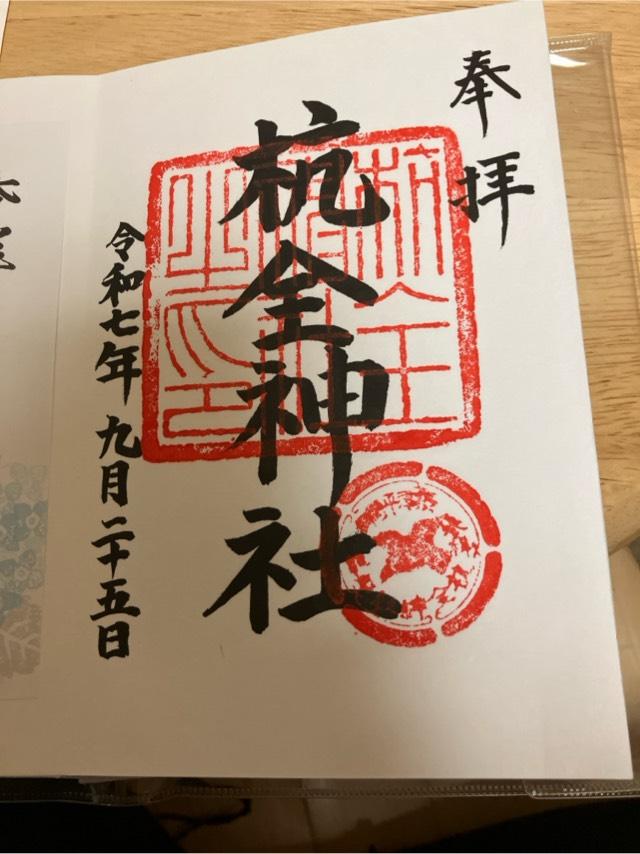 奉拝
杭全神社
令和七年九月二十五日